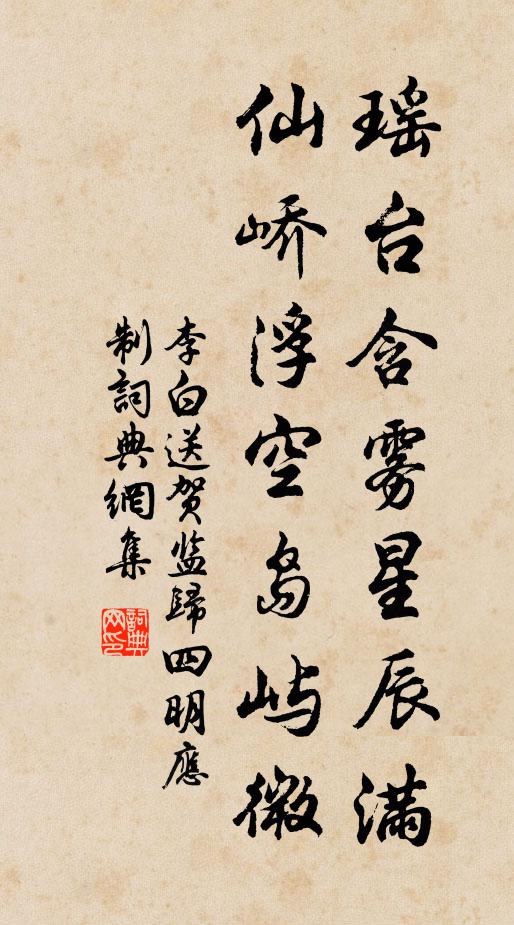 瑶台含雾星辰满
仙峤浮空岛屿微
李白送贺监歸四明應
制詞典網集
詞典网印